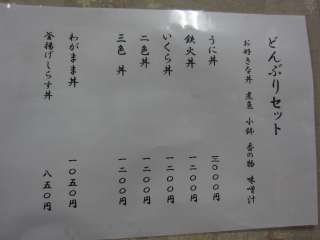 どんぶりセット
お好きな丼 煮魚 小鉢 香の物 味噌汁
うに丼 三〇〇〇円
鉄火丼 一二〇〇円
いくら丼 一二〇〇円
二色丼 一二〇〇円
三色丼 一二〇〇円
わがまま丼 一〇五〇円
釜揚げしらす丼 八五〇円